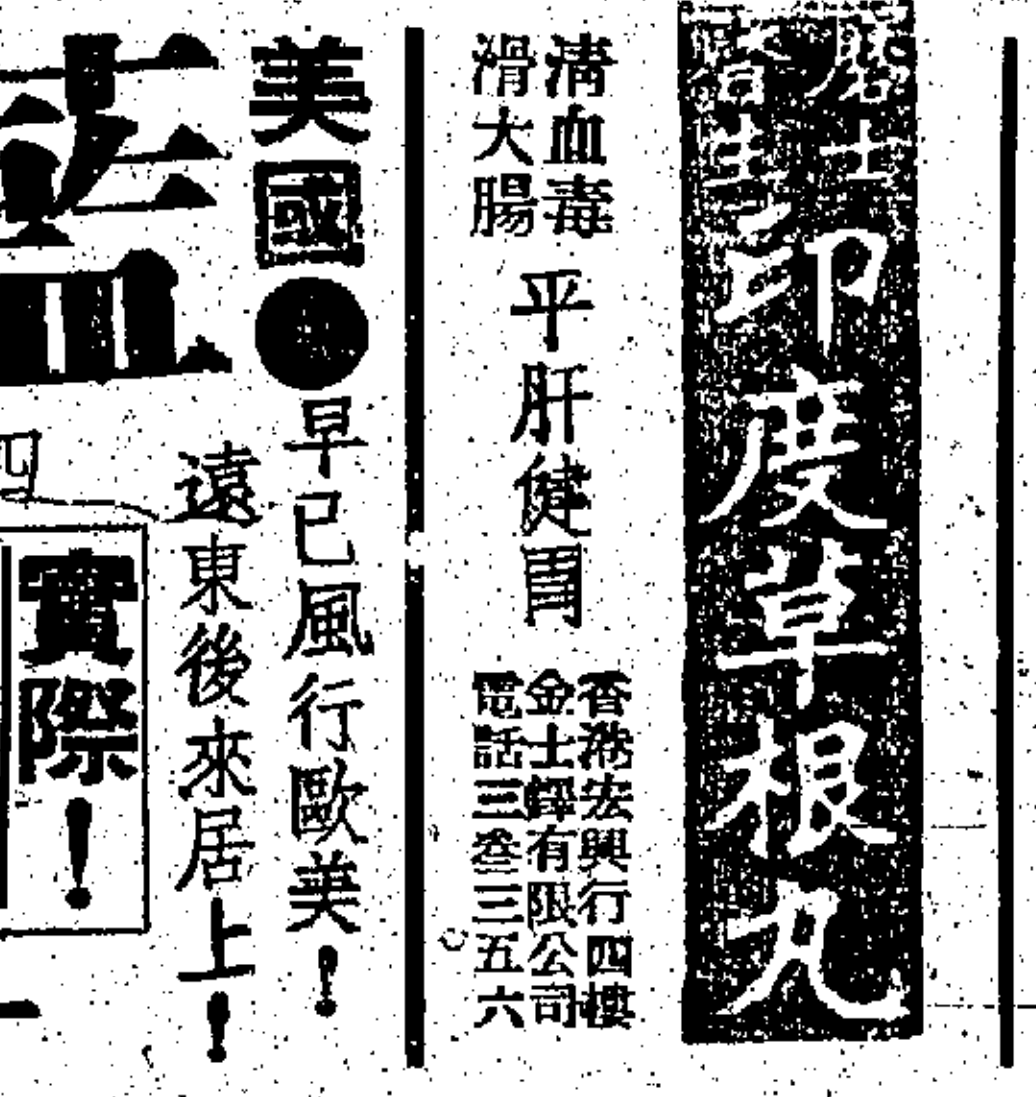 印度草根丸
清血毒
滑大腸
平肝健胃
香港宏興行四樓
金士鐸有限公司
電話三叁三五六
美國
早已風行歐美！
遠東後來居上！
實際！